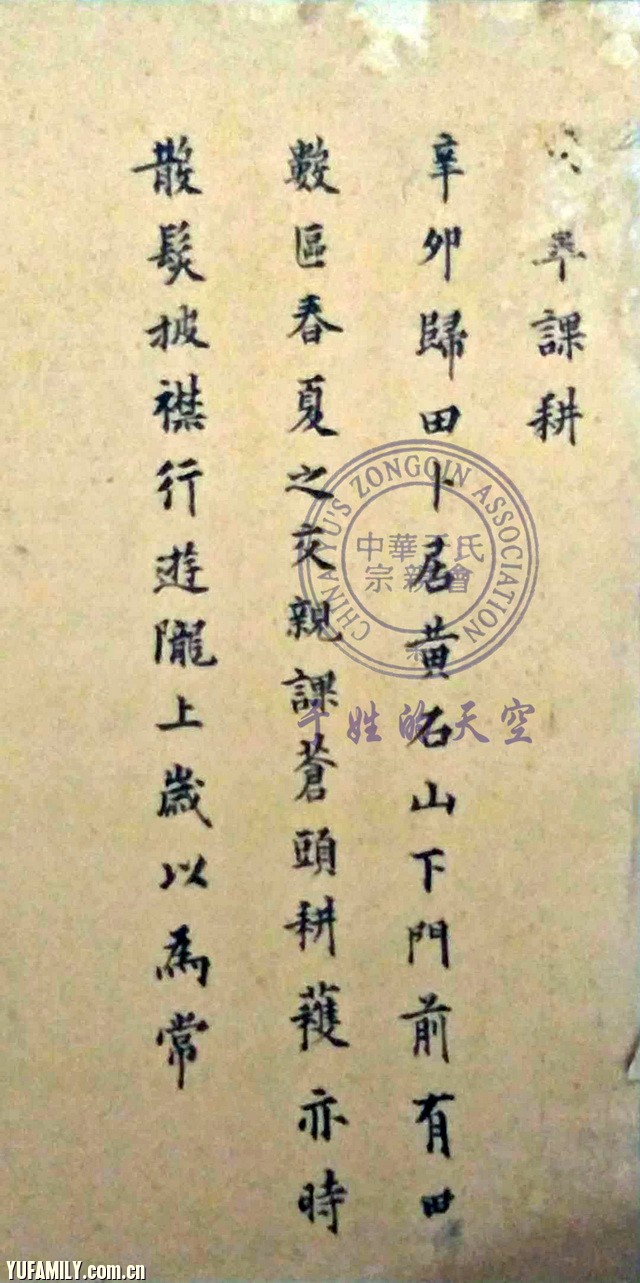 課耕
辛卯歸田卜居黄石山下門前有田
數區春夏之交親課蒼頭耕蓷亦時
散髮披襟行遊隴上歲以為常
CHINA YU'S ZONGQIN ASSOCIATION
中華于氏
宗親會
于姓的天空
YUFAMILY.com.cn